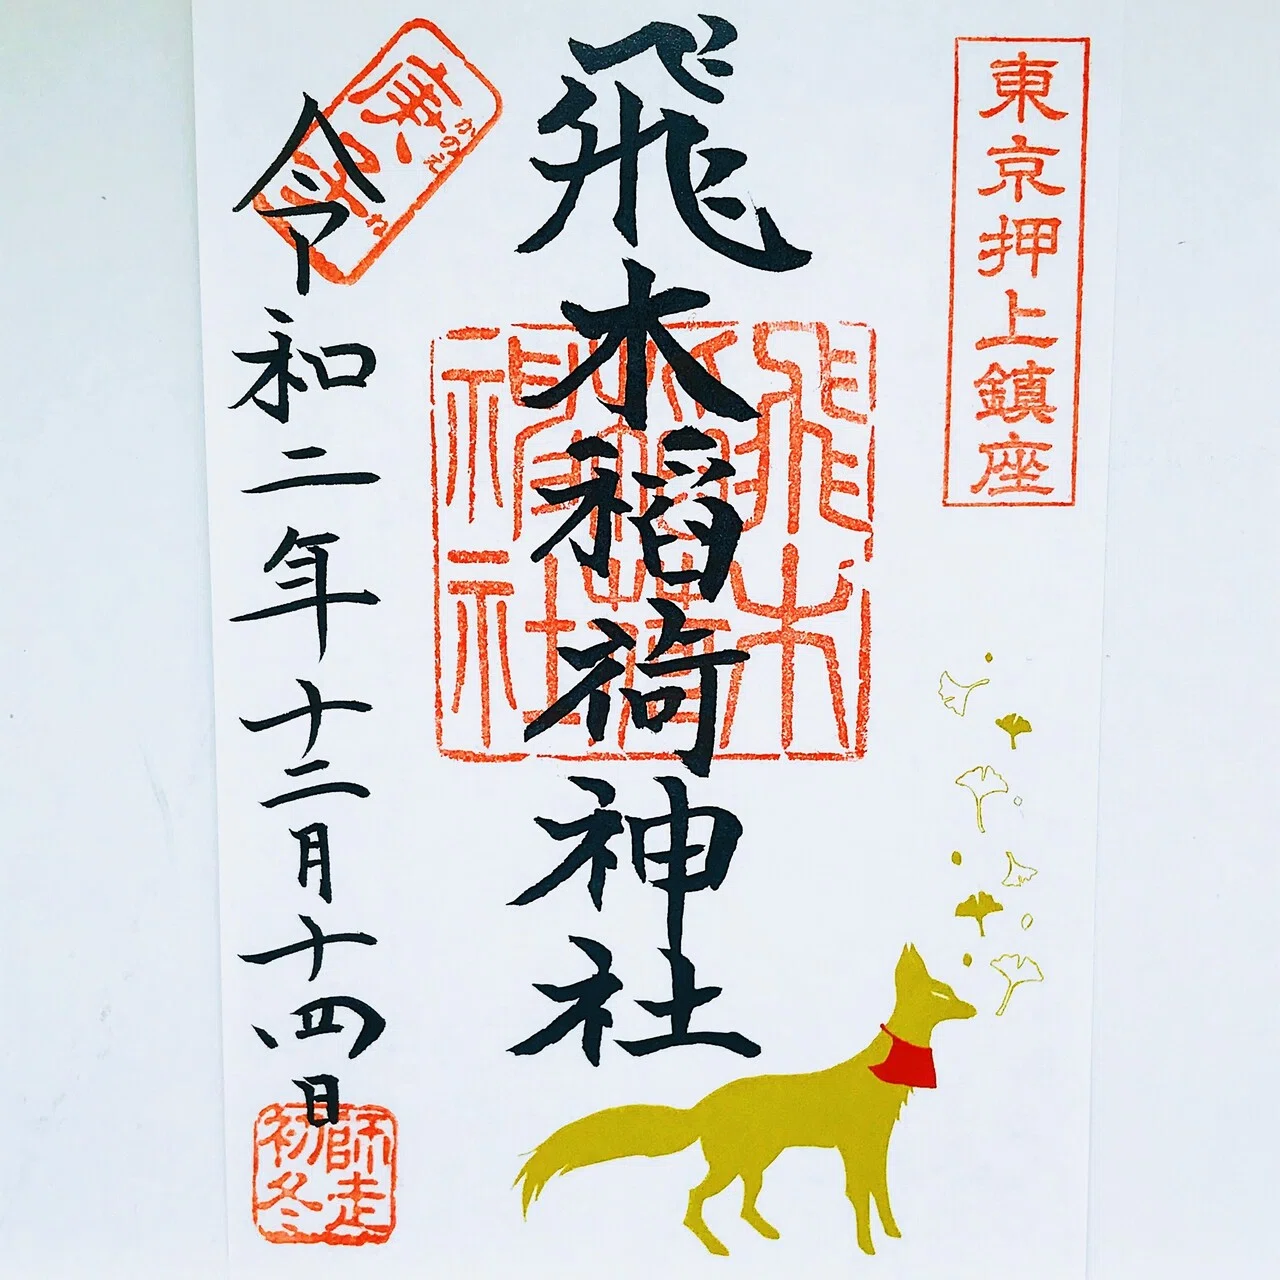 東京押上鎮座
飛木稲荷神社
飛木稲荷神社
庚子
かのえ
ね
令和二年十二月十四日
師走
初冬